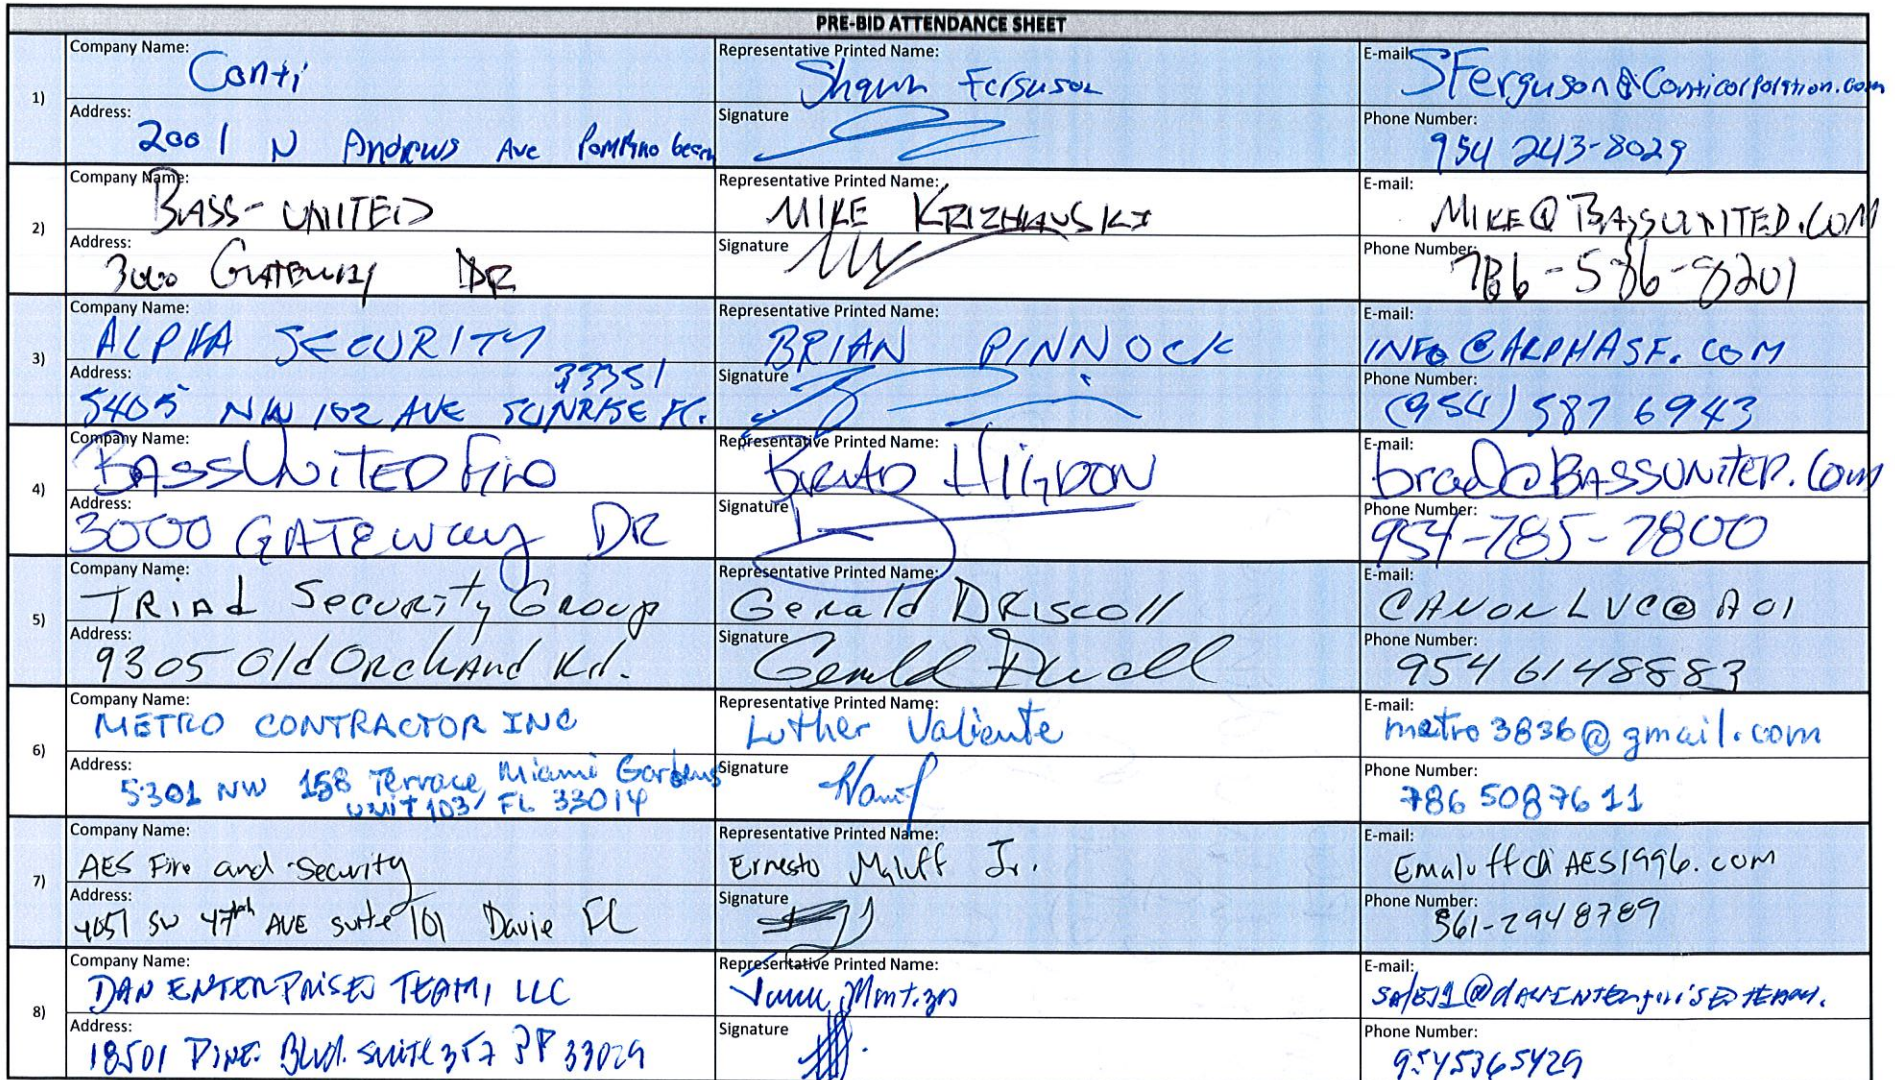 PRE-BID ATTENDANCE SHEET
Company Name: Conti Representative Printed Name: Shawn Ferguson E-mail: SFerguson@Conticorporation.com
1)
Address: 2001 N Andrews Ave Pompano beach Signature Phone Number: 954 243-8029
Company Name: BASS-UNITED Representative Printed Name: MIKE E-mail: MIKE@BASSUNITED.COM
2)
Address: 3000 GATEWAY DR Signature Phone Number: 786-586-8201
Company Name: ALPHA SECURITY Representative Printed Name: BRIAN PINNOCK E-mail: INFO@ALPHASF.COM
3)
Address: 33351 Signature Phone Number: (954) 587 6943
5405 NW 102 AVE SUNRISE FL.
Company Name: BASSUNITED Fire Representative Printed Name: HIGDON E-mail: brad@BASSUNITED.Com
4)
Address: 3000 GATEway DR Signature Phone Number: 954-785-7800
Company Name: TRIAd Security Group Representative Printed Name: Gerald DRiscoll E-mail: CANONLVC@AOl
5)
Address: 9305 Old ORchARd Rd. Signature Phone Number: 954 6148883
Company Name: METRO CONTRACTOR INC Representative Printed Name: Luther Valiente E-mail: metro3836@gmail.com
6)
Address: 5301 NW 158 Terrace, Miami Gardens Signature Phone Number: 786 5087611
unit 103/ FL 33014
Company Name: AES Fire and Security Representative Printed Name: Ernesto Maluff Jr. E-mail: Emaluff@AES1996.com
7)
Address: 4051 SW 47th AVE suite 101 Davie FL Signature Phone Number: 561-2948789
Company Name: DAN ENTERPRISES TEAM, LLC Representative Printed Name: E-mail: sales1@danENTERprisesTEAM.
8)
Address: 18501 PINE. BLVD. SUITE 357 PP 33029 Signature Phone Number: 9545365429